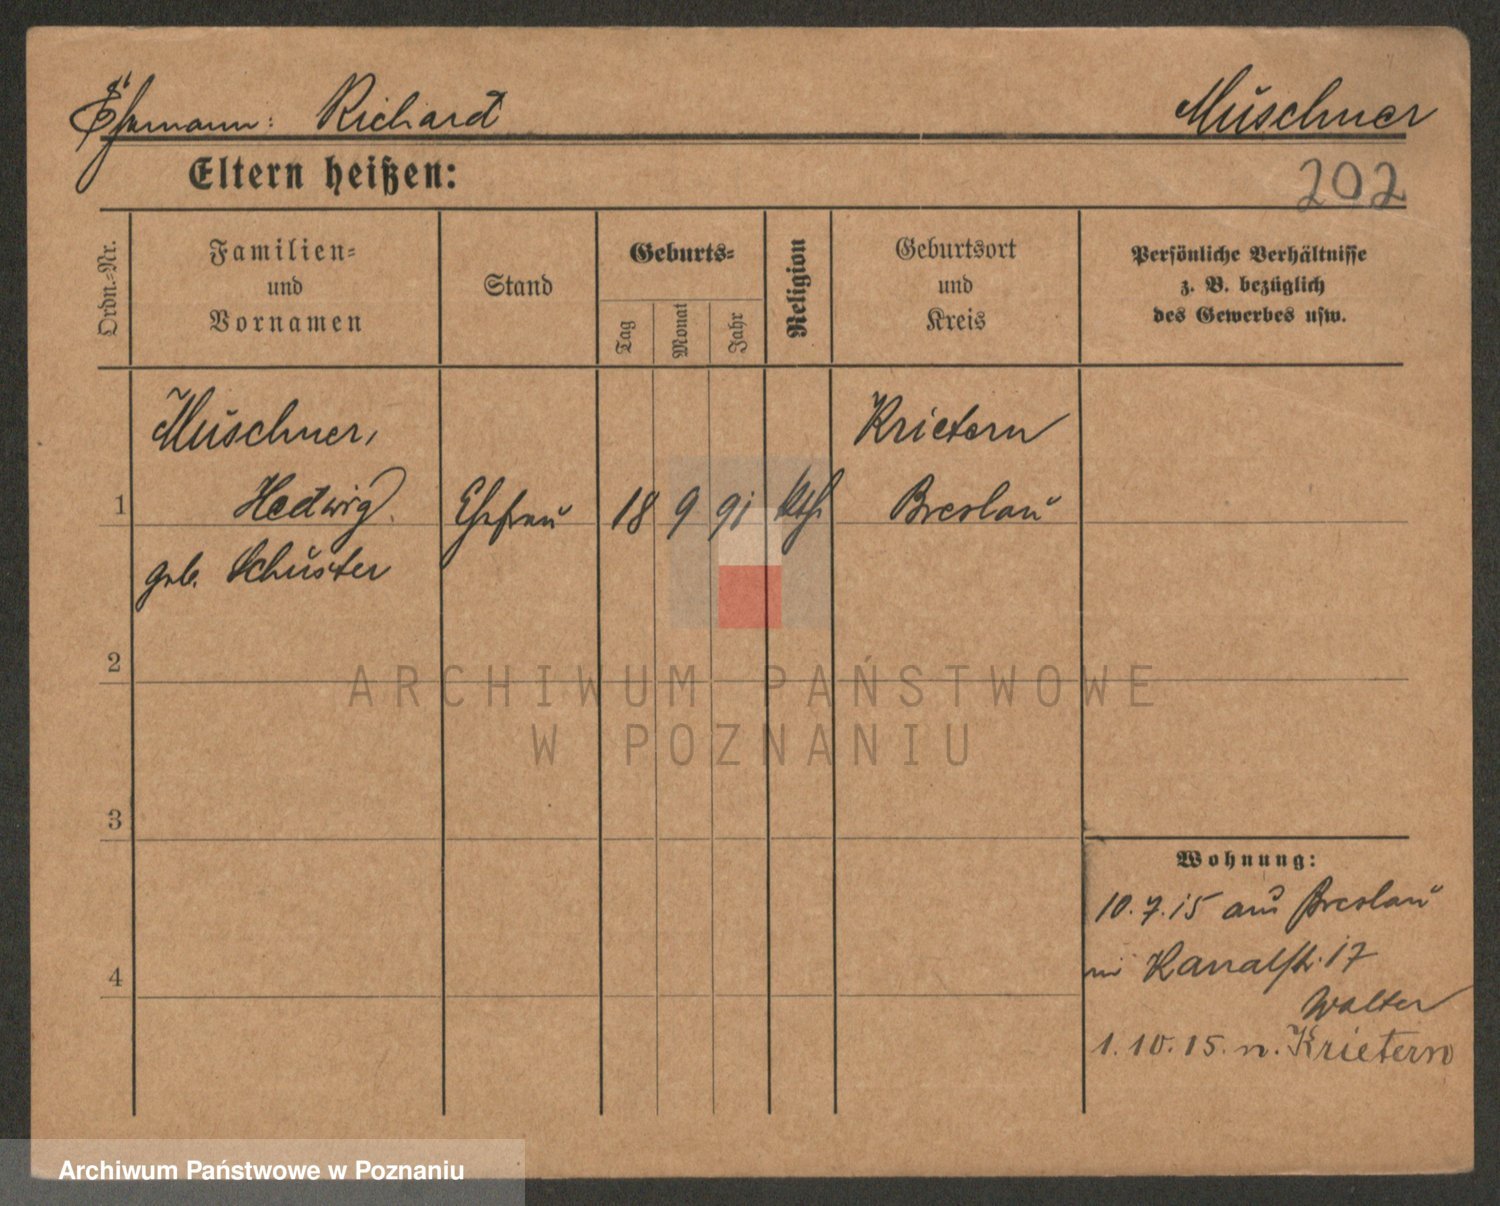 Ehemann: Richard Muschner
Eltern heißen: 202
Ordn.-Nr.
Familien-
und
Vornamen
Stand
Geburts-
Tag
Monat
Jahr
Religion
Geburtsort
und
Kreis
Persönliche Verhältnisse
z. B. bezüglich
des Gewerbes usw.
Muschner, Krietern
1 Hedwig Ehefrau 18 9 91 kth. Breslau
geb. Schuster
2
ARCHIWUM PAŃSTWOWE
W POZNANIU
3
Wohnung:
10.7.15 aus Breslau
4
Kanalstr. 17
Walter
1.10.15. n. Krietern
Archiwum Państwowe w Poznaniu